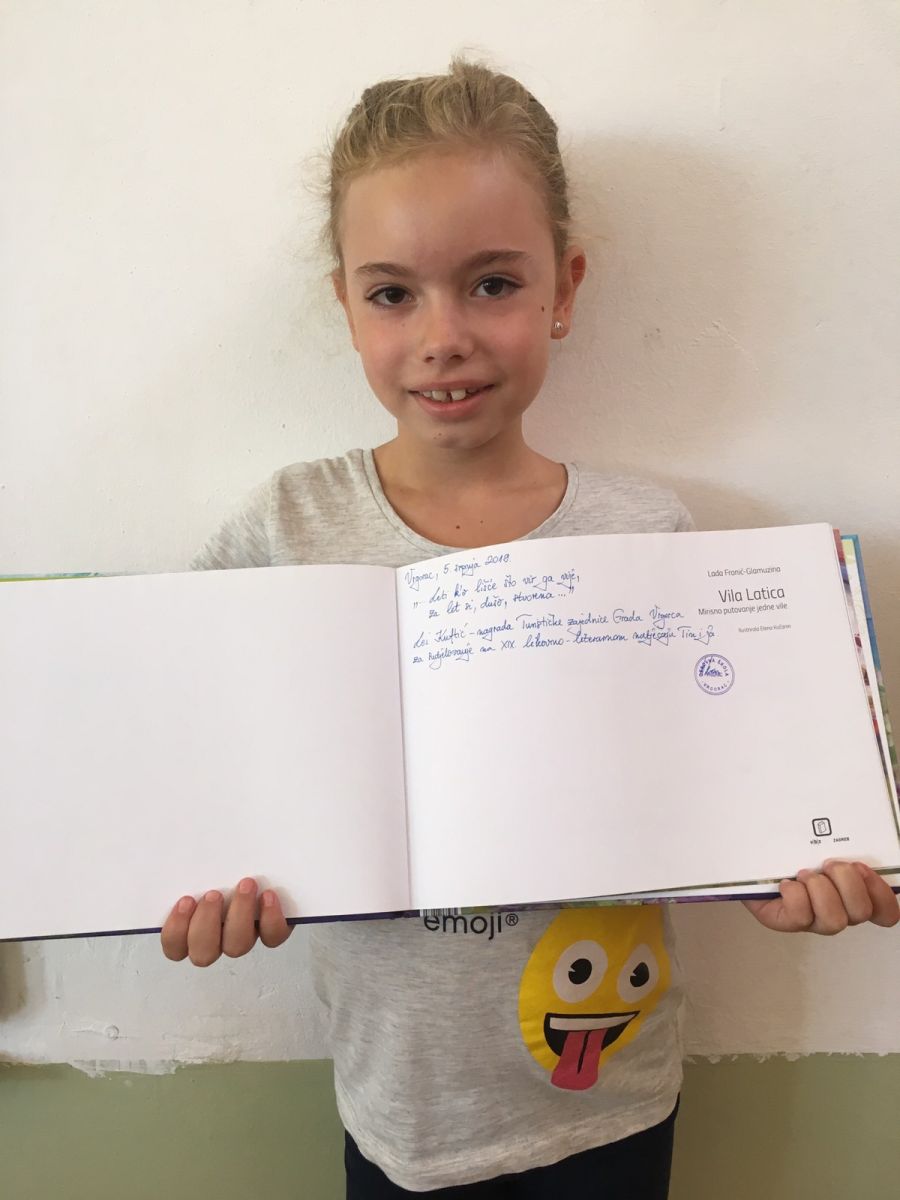 Vrgorac, 5. srpnja 2018.
"Leti k'o lišće što vir ga vije,
za let si, dušo, stvorena..."
Lei Kuftić - nagrada Turističke zajednice Grada Vrgorca
za sudjelovanje na XIX. likovno-literarnom natječaju Tin i ja
Lada Franić-Glamuzina
Vila Latica
Mirisno putovanje jedne vile
Ilustrirala Elena Kučanin
OSNOVNA ŠKOLA
VRGORAC
ZAGREB
emoji®